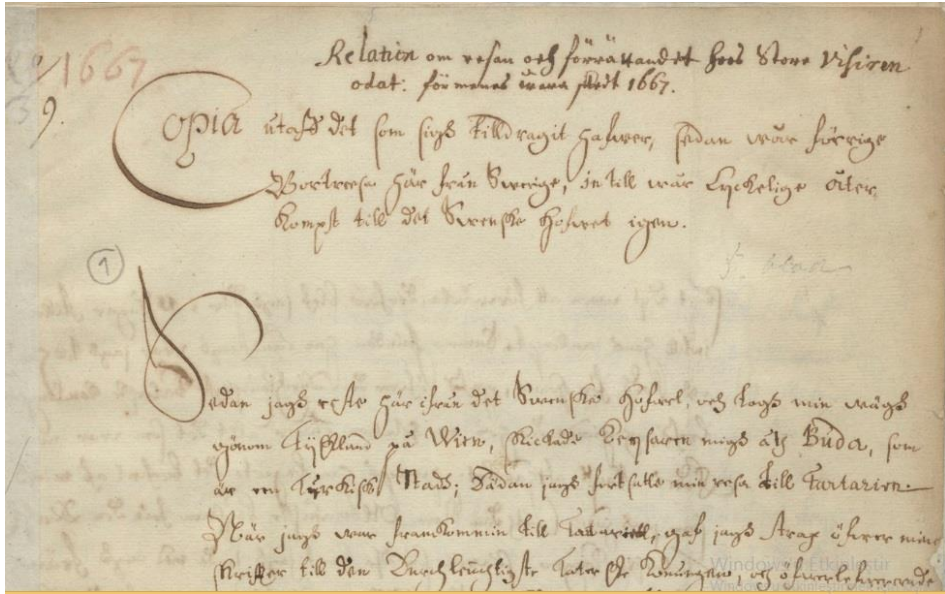 1667
9.
Relation om resan och förrättandet hoos Store Visiren
odat: förmenas wara skedt 1667.
Copia utaff det som sigh tilldragit hafwer, sedan wår förrige
Bortreesa här från Swerige, in till wår Lyckelige åter-
kompst till det Swenske hofwet igen.
1
Sedan jagh reste här ifrån det Swenske hofwet, och togh min wägh
genom Tyskland på Wien, skickade Keysaren migh åth Buda, som
är een Tyrkisk Stadh; Sädan jagh fortsatte min resa till Tartarien
När jagh war framkommin till Tattariett, gaf jagh strax öfwer mine
Skriffter till den Durchleuchtigste Taterske Konungen, och öfwerlefwererade
Windows'u Etkinleştir